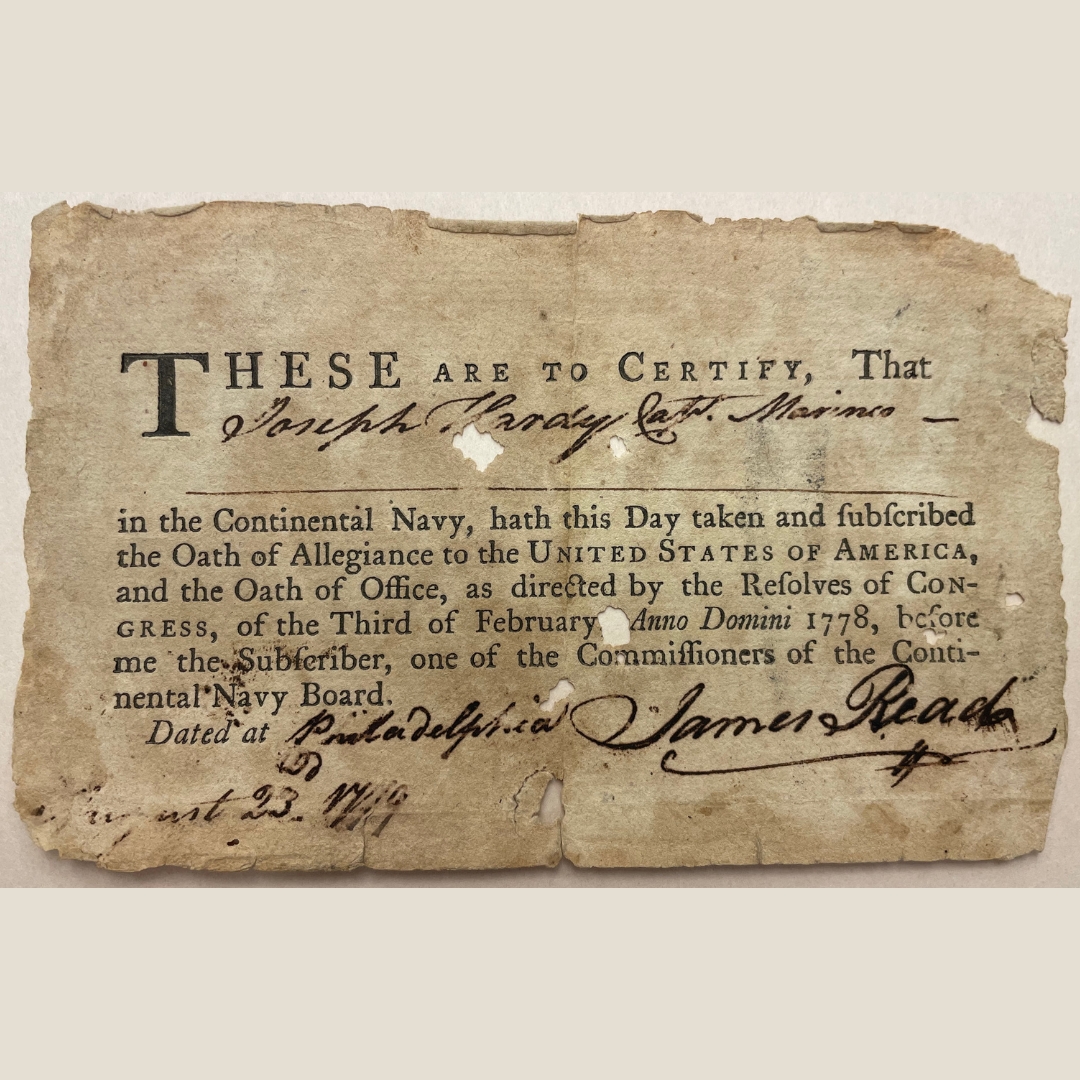 THESE ARE TO CERTIFY, That
Joseph Hardy Capt. Marines —
in the Continental Navy, hath this Day taken and ſubſcribed
the Oath of Allegiance to the UNITED STATES OF AMERICA,
and the Oath of Office, as directed by the Reſolves of CON-
GRESS, of the Third of February Anno Domini 1778, before
me the Subſcriber, one of the Commiſſioners of the Conti-
nental Navy Board.
Dated at Philadelphia James Read
August 23. 1779